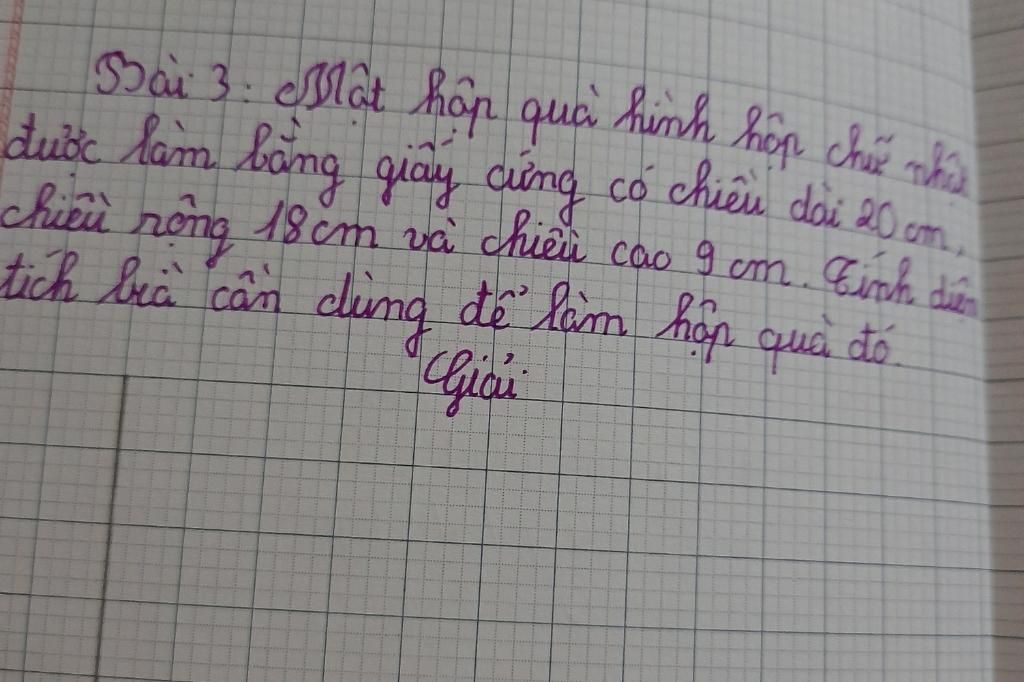 Bài 3: Một hộp quà hình hộp chữ nhật
được làm bằng giấy cứng có chiều dài 20 cm,
chiều rộng 18 cm và chiều cao 9 cm. Tính diện
tích bìa cần dùng để làm hộp quà đó.
Giải